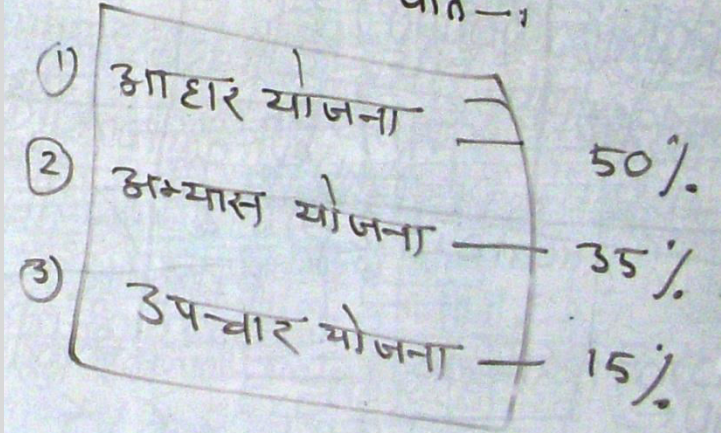 ① आहार योजना = 50%
② अभ्यास योजना — 35%
③ उपचार योजना — 15%